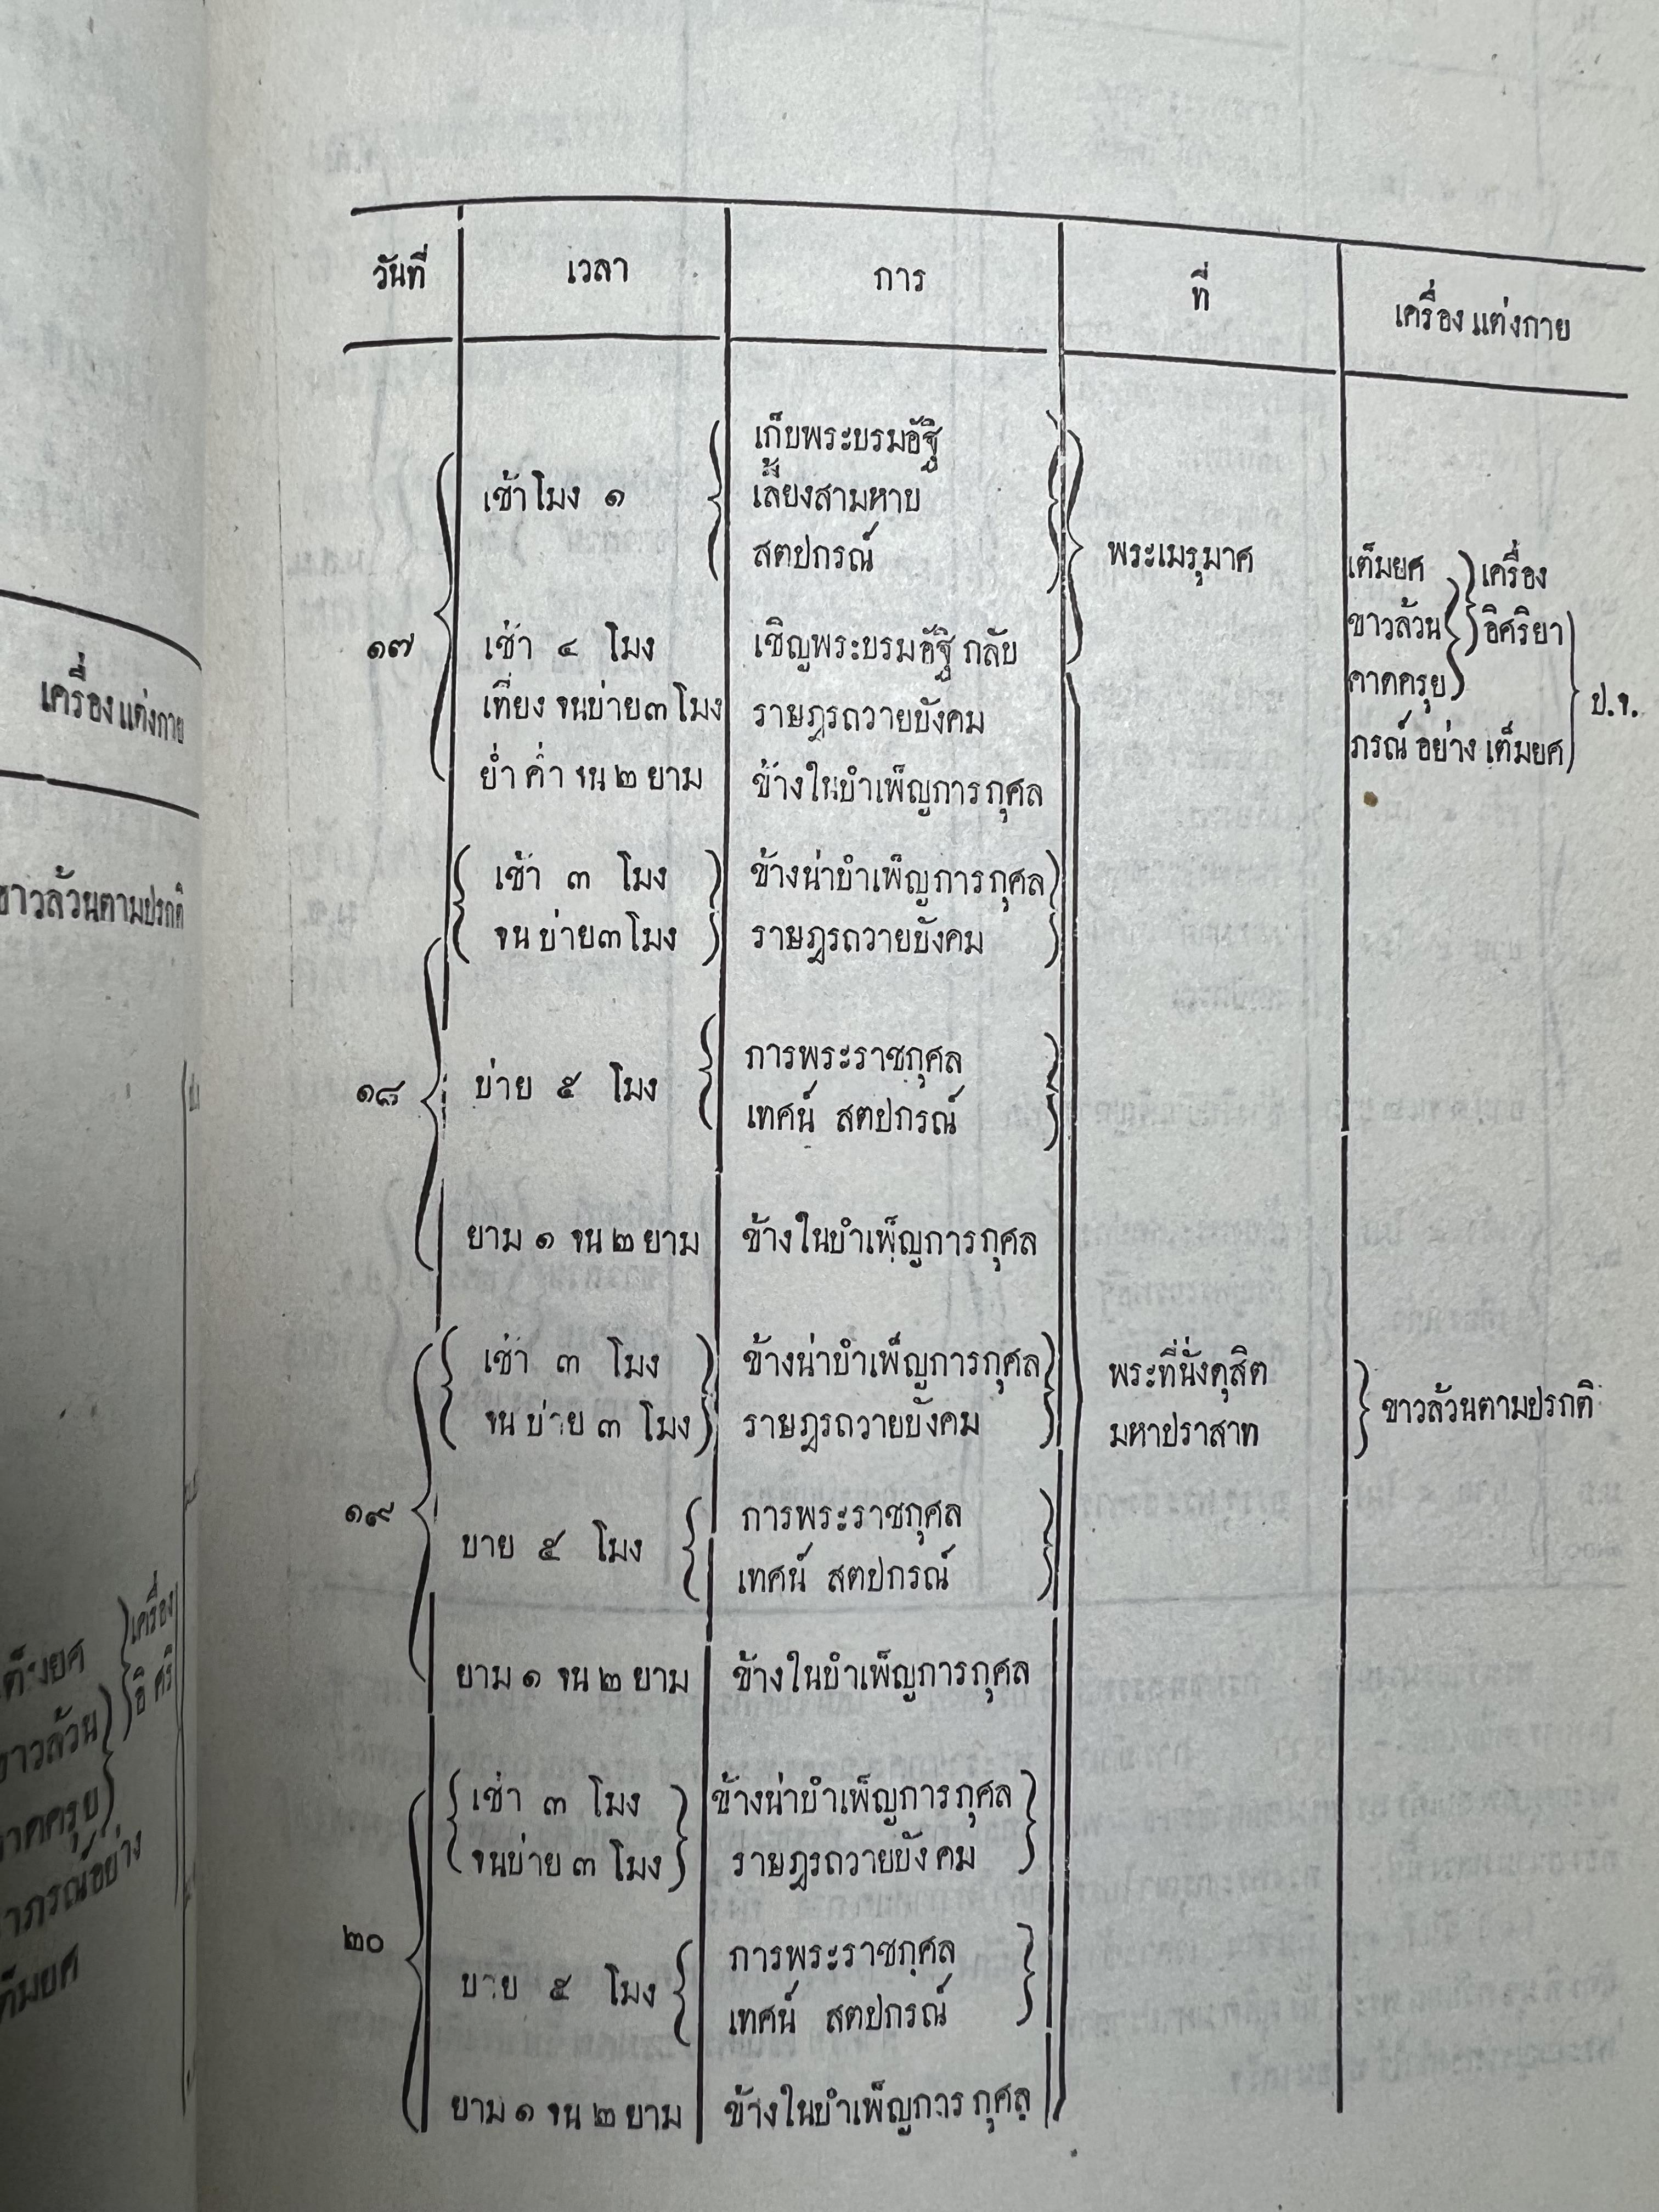 วันที่ เวลา การ ที่ เครื่องแต่งกาย
เก็บพระบรมอัฐิ
เช้าโมง ๑ เลี้ยงสามหาบ
สตปกรณ์ พระเมรุมาศ
เต็มยศ เครื่อง
ขาวล้วน อิศริยา
คาดครุย
ภรณ์ อย่าง เต็มยศ
ป.จ.
๑๗ เช้า ๔ โมง เชิญพระบรมอัฐิ กลับ
เที่ยง จนบ่าย ๓ โมง ราษฎรถวายบังคม
ย่ำ ค่ำ จน ๒ ยาม ข้างในบำเพ็ญการกุศล
เช้า ๓ โมง ข้างน่าบำเพ็ญการกุศล
จน บ่าย ๓ โมง ราษฎรถวายบังคม
การพระราชกุศล
๑๘ บ่าย ๕ โมง
เทศน์ สตปกรณ์
ยาม ๑ จน ๒ ยาม ข้างในบำเพ็ญการกุศล
เช้า ๓ โมง ข้างน่าบำเพ็ญการกุศล พระที่นั่งดุสิต
จน บ่าย ๓ โมง ราษฎรถวายบังคม มหาปราสาท ขาวล้วนตามปรกติ
๑๙ การพระราชกุศล
บาย ๕ โมง
เทศน์ สตปกรณ์
ยาม ๑ จน ๒ ยาม ข้างในบำเพ็ญการกุศล
เช้า ๓ โมง ข้างน่าบำเพ็ญการกุศล
จนบ่าย ๓ โมง ราษฎรถวายบังคม
๒๐ การพระราชกุศล
บาย ๕ โมง
เทศน์ สตปกรณ์
ยาม ๑ จน ๒ ยาม ข้างในบำเพ็ญการ กุศล
เครื่องแต่งกาย
ขาวล้วนตามปรกติ